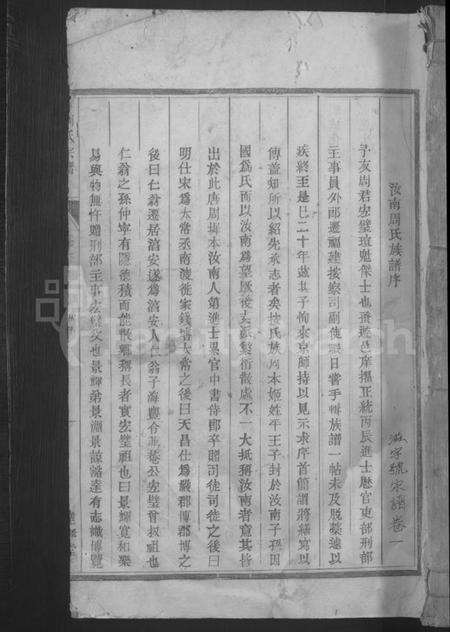 汝南周氏族譜序
子友周君宏璧瑄魁傑士也遊邑庠擢正統丙辰進士歷官吏部刑部
主事員外郎遷福建按察司副使暇日嘗手輯族譜一帖未及脫藁遽以
疾終至是已二十年茲其子恂來京師持以見示求序首簡謂將繕寫以
傳蓋知所以紹先承志者矣按氏族周本姬姓平王子封於汝南子孫因
國為氏而以汝南為望厥後支派繁衍散處不一大抵稱汝南者宜其皆
出於此唐周墀本汝南人第進士累官中書侍郎卒贈司徒司徒之後曰
明仕宋為太常丞南渡徙家錢塘太常之後曰天昌仕為嚴郡博郡博之
後曰仁翁遷居湻安遂為湻安人仁翁子海 宏璧曾叔祖也
仁翁之孫仲宰有隱德積而能散鄉稱長者宏璧祖也曰景輝寬和樂
易與物無忤贈刑部主事宏璧父也景輝弟景灝景諒 達有志識博覽
海寧號宋譜卷一